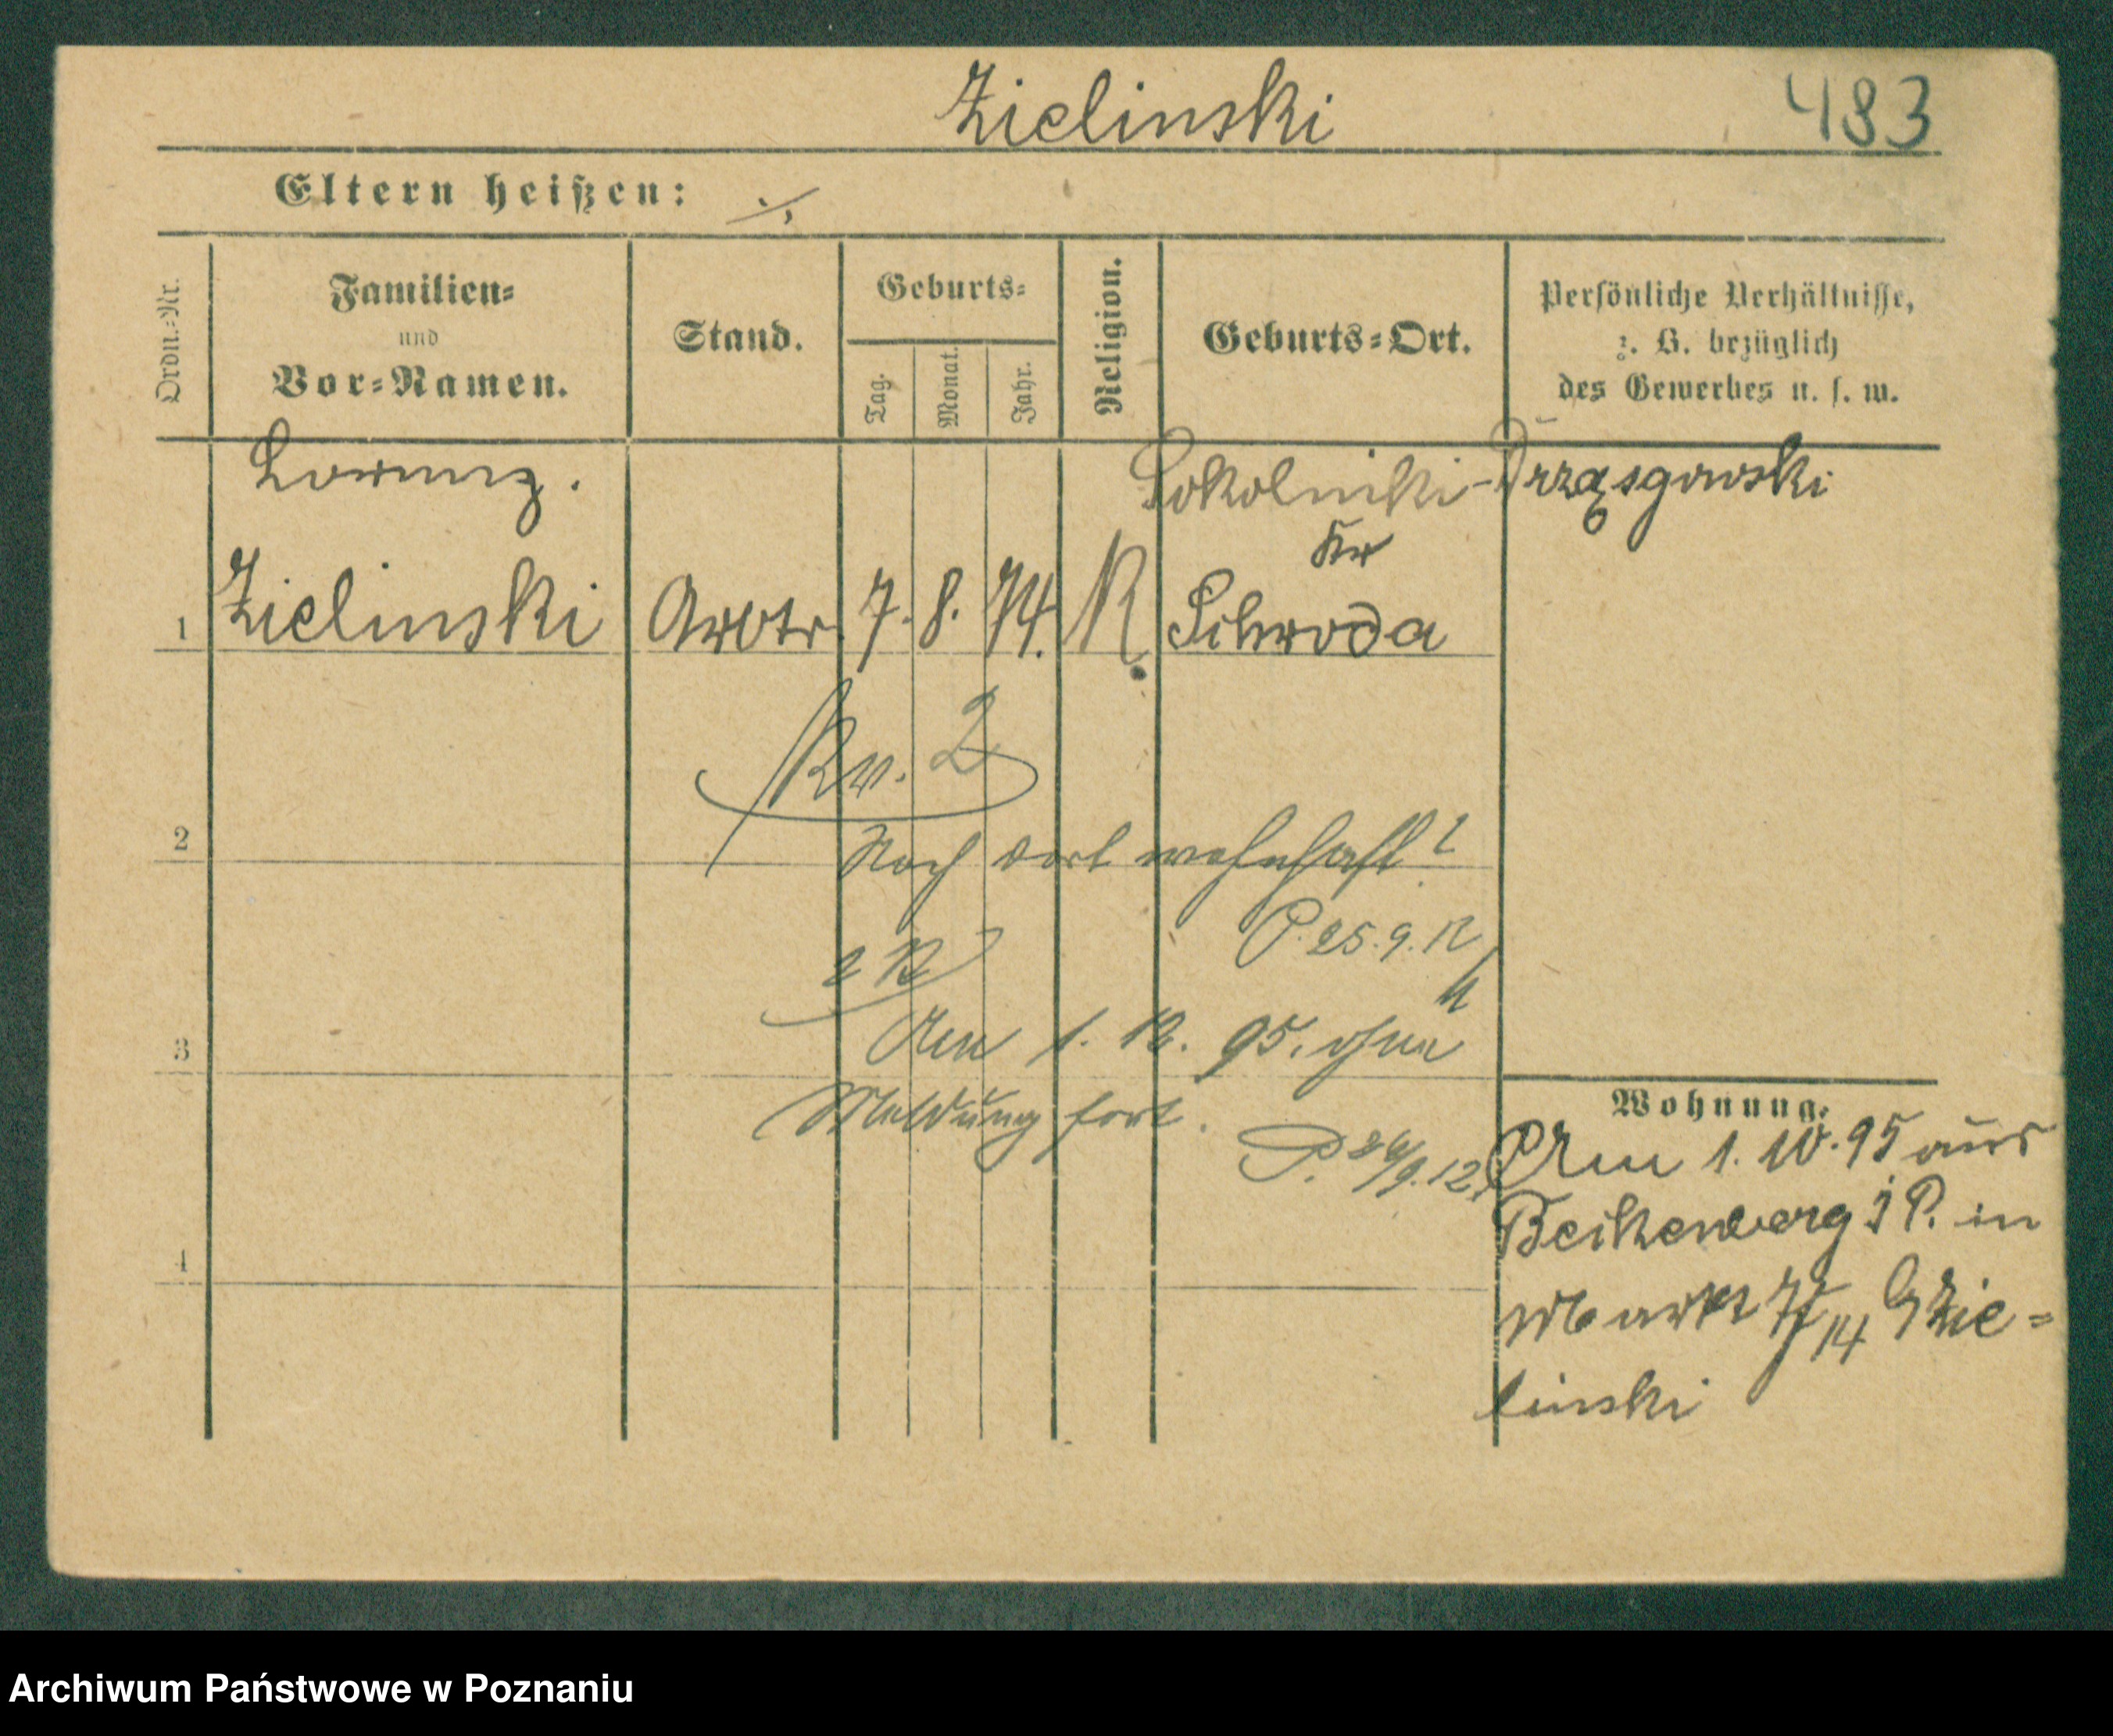 Zielinski 483
Eltern heißen: ./.
Ordn.-Nr.
Familien-
und
Vor-Namen.
Stand.
Geburts-
Tag.
Monat.
Jahr.
Religion.
Geburts-Ort.
Persönliche Verhältnisse,
z. B. bezüglich
des Gewerbes u. s. w.
Lorenz.
Sokolniki-Drząsgowski
Kr
1 Zielinski Arbtr. 7. 8. 74. K Schroda
Rv. 2
2
Noch dort wohnhaft?
P. 25.9.12
2 R
3
Am 1. 12. 95. ohne
Meldung fort.
P. 26/9.12.
4
Wohnung.
Am 1. 10. 95 aus
i P. in
Markt 77/14 Zie=
linski
Archiwum Państwowe w Poznaniu